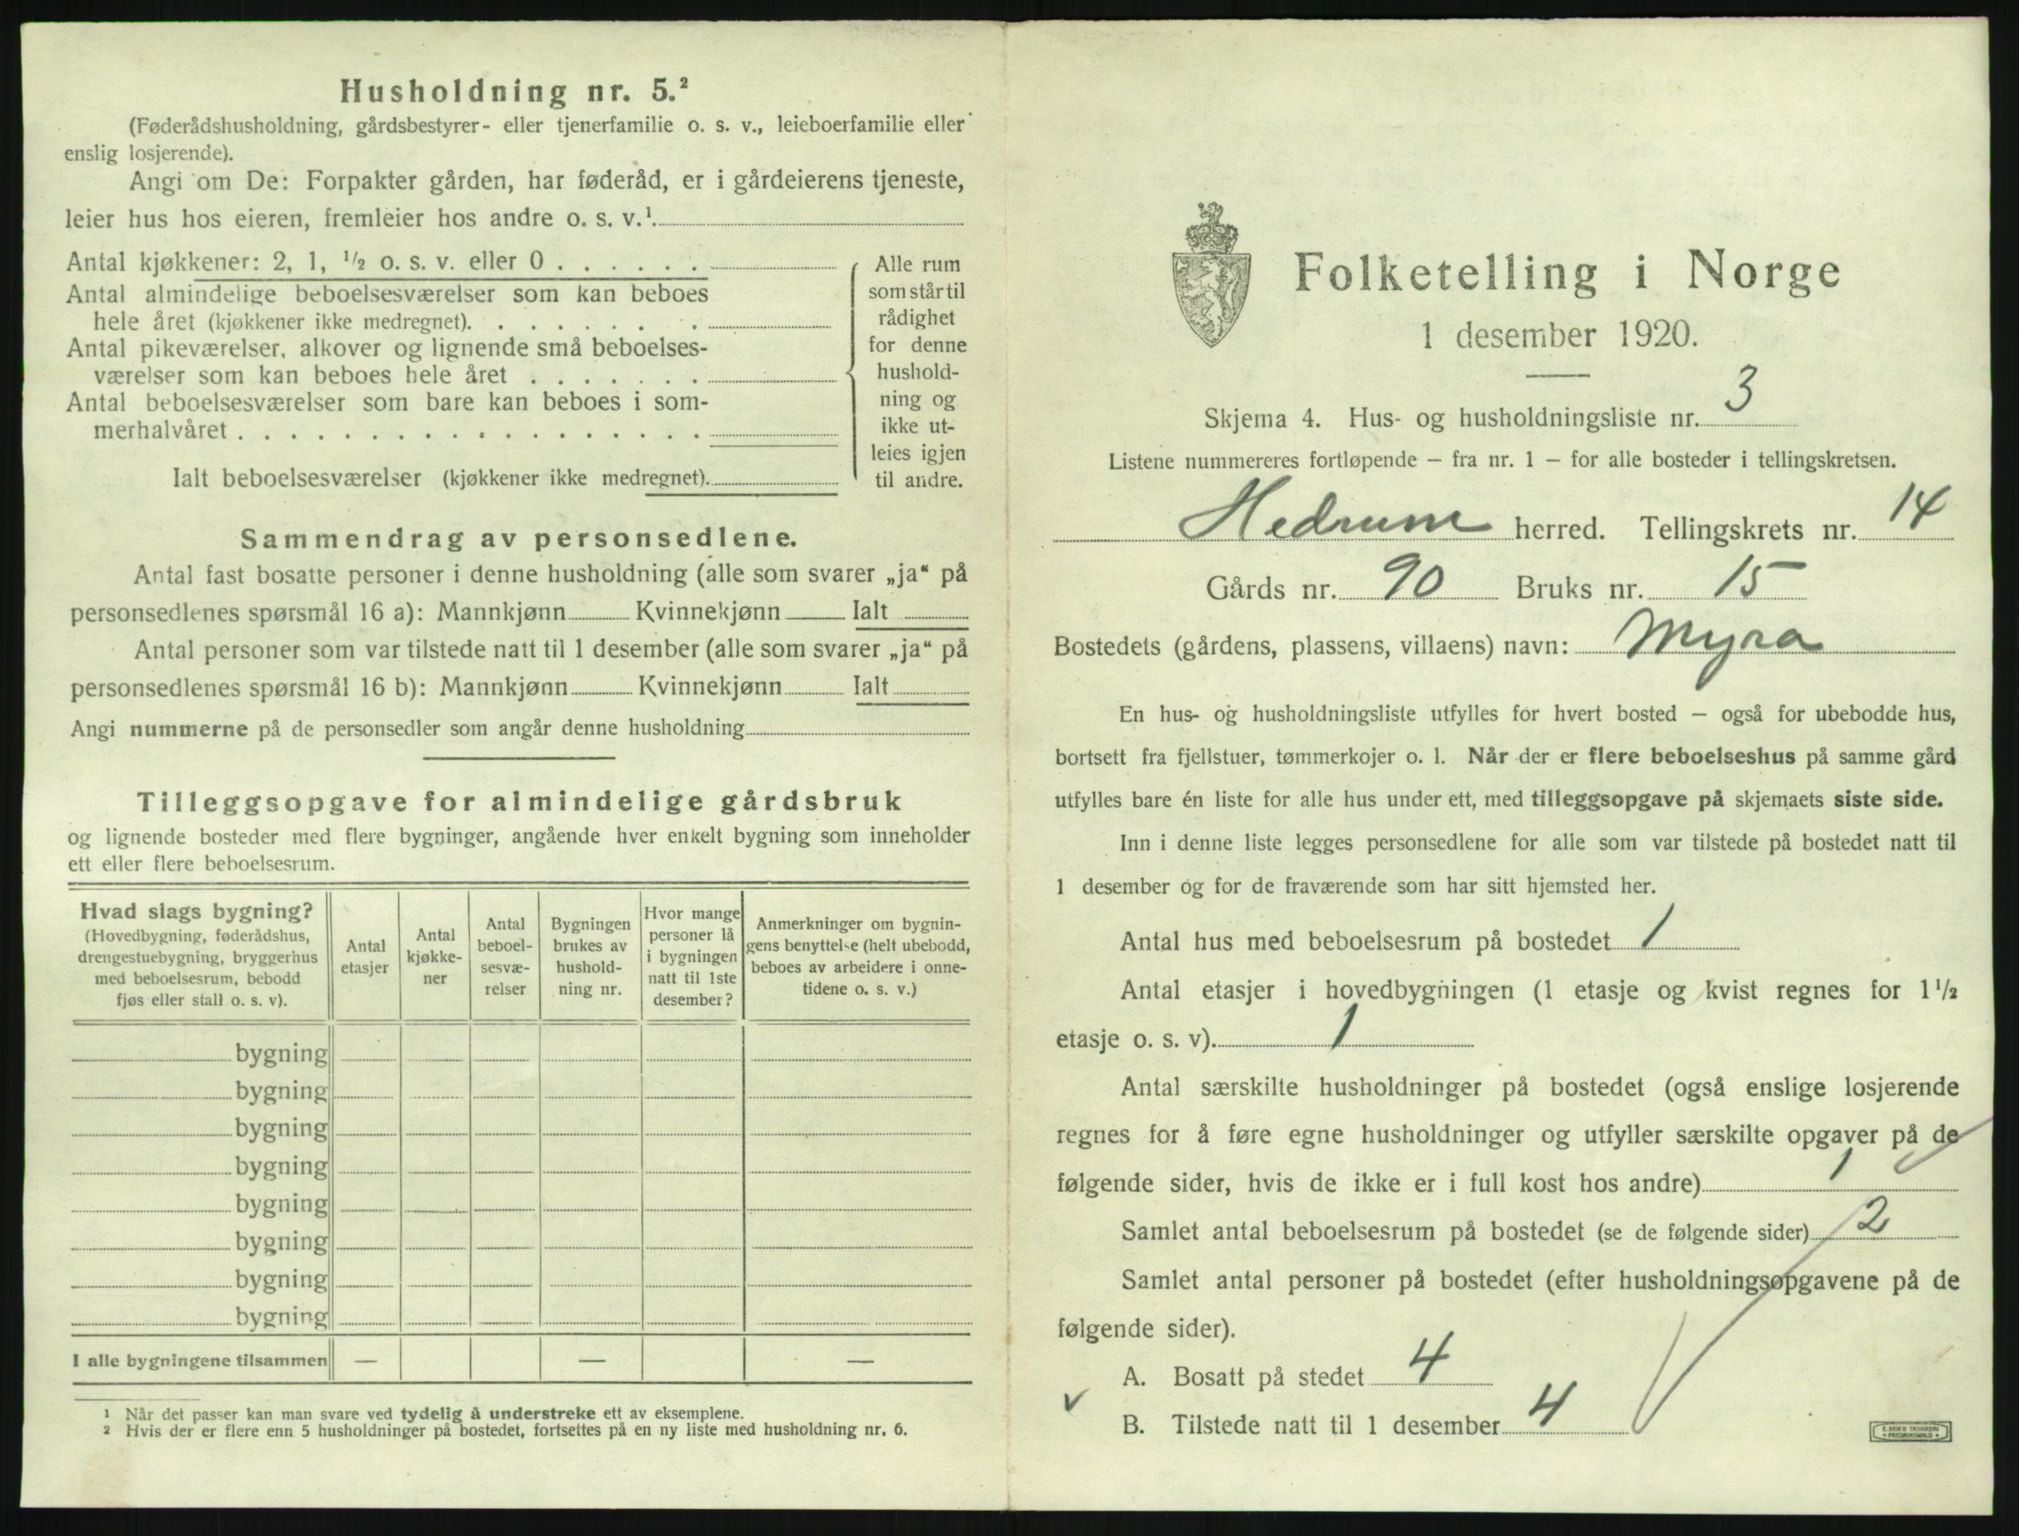 Husholdning nr. 5.²
(Føderådshusholdning, gårdsbestyrer- eller tjenerfamilie o. s. v., leieboerfamilie eller
enslig losjerende).
Angi om De: Forpakter gården, har føderåd, er i gårdeierens tjeneste,
leier hus hos eieren, fremleier hos andre o. s. v.¹
Antal kjøkkener: 2, 1, ½ o. s. v. eller 0 . . . . . .
Antal almindelige beboelsesværelser som kan beboes
hele året (kjøkkener ikke medregnet). . . . . . . .
Antal pikeværelser, alkover og lignende små beboelses-
værelser som kan beboes hele året . . . . . . .
Antal beboelsesværelser som bare kan beboes i som-
merhalvåret . . . . . . . . . . . . . . . . . .
Ialt beboelsesværelser (kjøkkener ikke medregnet).
Alle rum
som står til
rådighet
for denne
hushold-
ning og
ikke ut-
leies igjen
til andre.
Sammendrag av personsedlene.
Antal fast bosatte personer i denne husholdning (alle som svarer „ja“ på
personsedlenes spørsmål 16 a): Mannkjønn Kvinnekjønn Ialt
Antal personer som var tilstede natt til 1 desember (alle som svarer „ja“ på
personsedlenes spørsmål 16 b): Mannkjønn Kvinnekjønn Ialt
Angi nummerne på de personsedler som angår denne husholdning
Tilleggsopgave for almindelige gårdsbruk
og lignende bosteder med flere bygninger, angående hver enkelt bygning som inneholder
ett eller flere beboelsesrum.
Hvad slags bygning?
(Hovedbygning, føderådshus,
drengestuebygning, bryggerhus
med beboelsesrum, bebodd
fjøs eller stall o. s. v).
Antal
etasjer
Antal
kjøkke-
ner
Antal
beboel-
sesvæ-
relser
Bygningen
brukes av
hushold-
ning nr.
Hvor mange
personer lå
i bygningen
natt til 1ste
desember?
Anmerkninger om bygnin-
gens benyttelse (helt ubebodd,
beboes av arbeidere i onne-
tidene o. s. v.)
bygning
bygning
bygning
bygning
bygning
bygning
bygning
bygning
I alle bygningene tilsammen — — —
¹ Når det passer kan man svare ved tydelig å understreke ett av eksemplene.
² Hvis der er flere enn 5 husholdninger på bostedet, fortsettes på en ny liste med husholdning nr. 6.
Folketelling i Norge
1 desember 1920.
Skjema 4. Hus- og husholdningsliste nr. 3
Listene nummereres fortløpende – fra nr. 1 – for alle bosteder i tellingskretsen.
Hedrum herred. Tellingskrets nr. 14
Gårds nr. 90 Bruks nr. 15
Bostedets (gårdens, plassens, villaens) navn: Myra
En hus- og husholdningsliste utfylles for hvert bosted – også for ubebodde hus,
bortsett fra fjellstuer, tømmerkojer o. l. Når der er flere beboelseshus på samme gård
utfylles bare én liste for alle hus under ett, med tilleggsopgave på skjemaets siste side.
Inn i denne liste legges personsedlene for alle som var tilstede på bostedet natt til
1 desember og for de fraværende som har sitt hjemsted her.
Antal hus med beboelsesrum på bostedet 1
Antal etasjer i hovedbygningen (1 etasje og kvist regnes for 1½
etasje o. s. v). 1
Antal særskilte husholdninger på bostedet (også enslige losjerende
regnes for å føre egne husholdninger og utfyller særskilte opgaver på de
følgende sider, hvis de ikke er i full kost hos andre) 1
Samlet antal beboelsesrum på bostedet (se de følgende sider) 2
Samlet antal personer på bostedet (efter husholdningsopgavene på de
følgende sider).
A. Bosatt på stedet 4
B. Tilstede natt til 1 desember 4